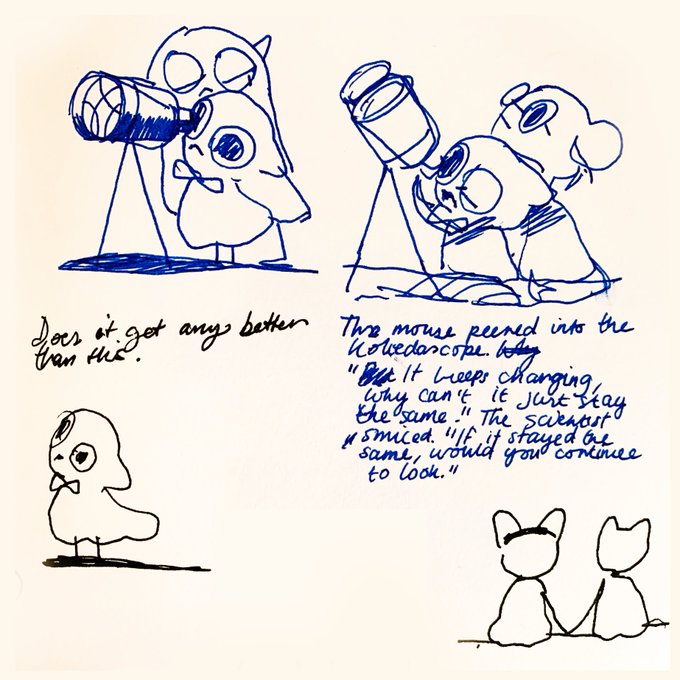 Does it get any better
than this.
The mouse peered into the
Koliedascope. Why
"But It keeps changing,
why can't it just stay
the same." The scientist
smiled. "If it stayed the
same, would you continue
to look."